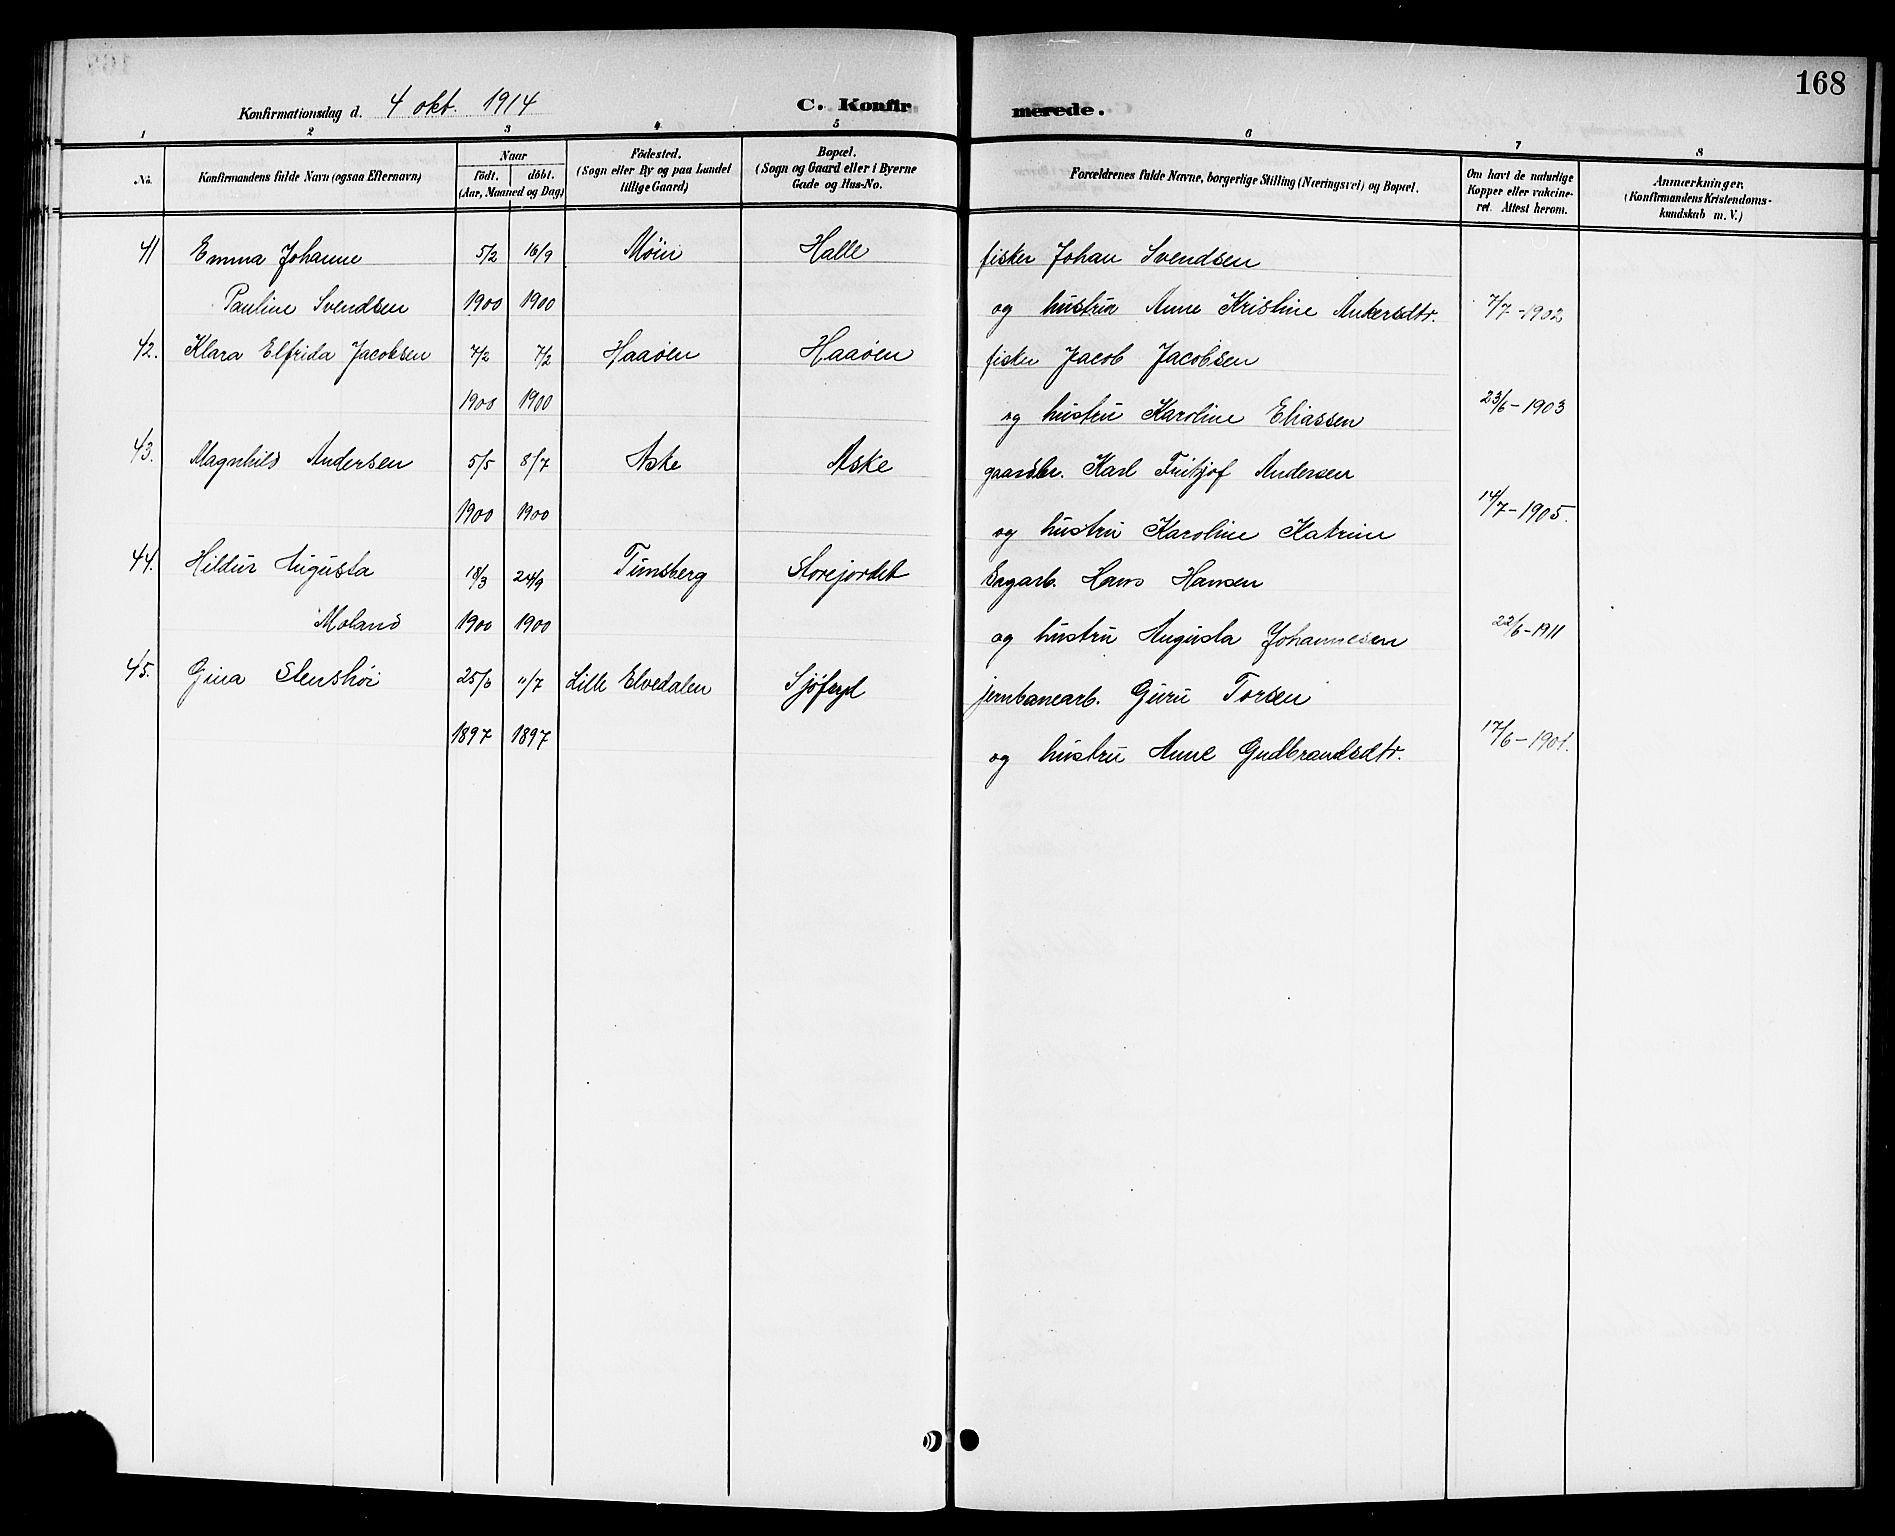 168
Konfirmationsdag d. 4 okt. 1914
C. Konfirmerede.
1 2 3 4 5 6 7 8
No.
Konfirmandens fulde Navn (ogsaa Efternavn)
Naar
födt. döbt.
(Aar, Maaned og Dag)
Födested.
(Sogn eller By og paa Landet
tillige Gaard)
Bopæl.
(Sogn og Gaard eller i Byerne
Gade og Hus-No.
Forældrenes fulde Navne, borgerlige Stilling (Næringsvei) og Bopæl.
Om havt de naturlige
Kopper eller vakcine-
ret. Attest herom.
Anmærkninger.
(Konfirmandens Kristendoms-
kundskab m. V.)
41 Emma Johanne 5/2 16/9 Møin Halle fisker Johan Svendsen
Pauline Svendsen 1900 1900 og hustru Anne Kristine Ankersdtr. 7/7-1902
42. Klara Elfrida Jacobsen 7/2 7/2 Haaøen Haaøen fisker Jacob Jacobsen
1900 1900 og hustru Karoline Eliassen 23/6-1903
43. Magnhild Andersen 5/5 8/7 Aske Aske gaardbr. Karl Fritjof Andersen
1900 1900 og hustru Karoline Katrine 14/7-1905.
44. Hildur Augusta 18/3 24/9 Tunsberg Storejordet Sagarb. Hans Hansen
Moland 1900 1900 og hustru Augusta Johannesen 22/6-1911
45. Gina Stenshøi 25/6 11/7 Lille Elvedalen Sjöfryd jernbanearb. Guru Torsen
1897 1897 og hustru Anne Gudbrandsdtr. 17/6-1901.